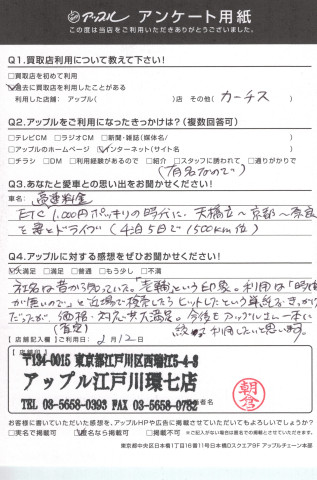 アップル アンケート用紙
この度は当店をご利用いただきありがとうございました。
Q1.買取店利用について教えて下さい!
□買取店を初めて利用
☑過去に買取店を利用したことがある
利用した店舗: アップル( )店 その他( カーチス )
Q2.アップルをご利用になったきっかけは?(複数回答可)
□テレビCM □ラジオCM □新聞・雑誌(媒体名/ )
□アップルのホームページ ☑インターネット(サイト名 )
□チラシ □DM □利用経験があるので □紹介 □スタッフに誘われて □通りがかりで
(有名なので)
Q3.あなたと愛車との思い出をお聞かせください!
車名: 高速料金
ETC 1,000円ポッキリの時代に、天橋立〜京都〜奈良
を君とドライブ (4泊5日で1500km位)
Q4.アップルに対する感想をぜひお聞かせください!
☑大満足 □満足 □普通 □もう少し □不満
社名は昔から知っていた。「老舗」という印象。利用は「時間
が無いので」と近場で検索したらヒットしたという単純なきっかけ
だったが、価格・対応共大満足。今後もアップルさん一本に
(査定) 絞って利用したいと思います。
【店舗記入欄】ご利用日: 2月12日
【店舗用】
〒134-0015 東京都江戸川区西瑞江5-4-3
アップル江戸川環七店
TEL 03-5658-0393 FAX 03-5658-0782
担当者名
朝倉
お客様に書いていただいた感想を、アップルHPや広告に掲載させていただいてもよろしいでしょうか?
□実名で掲載可 ☑匿名なら掲載可 □掲載不可
東京都中央区日本橋1丁目16番11号日本橋DスクエアF アップルチェーン本部